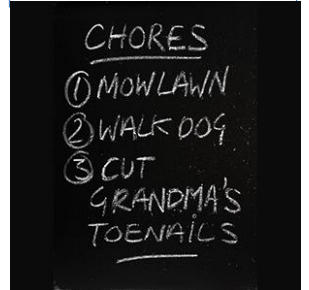 CHORES
① MOWLAWN
② WALK DOG
③ CUT
GRANDMA'S
TOENAiLS